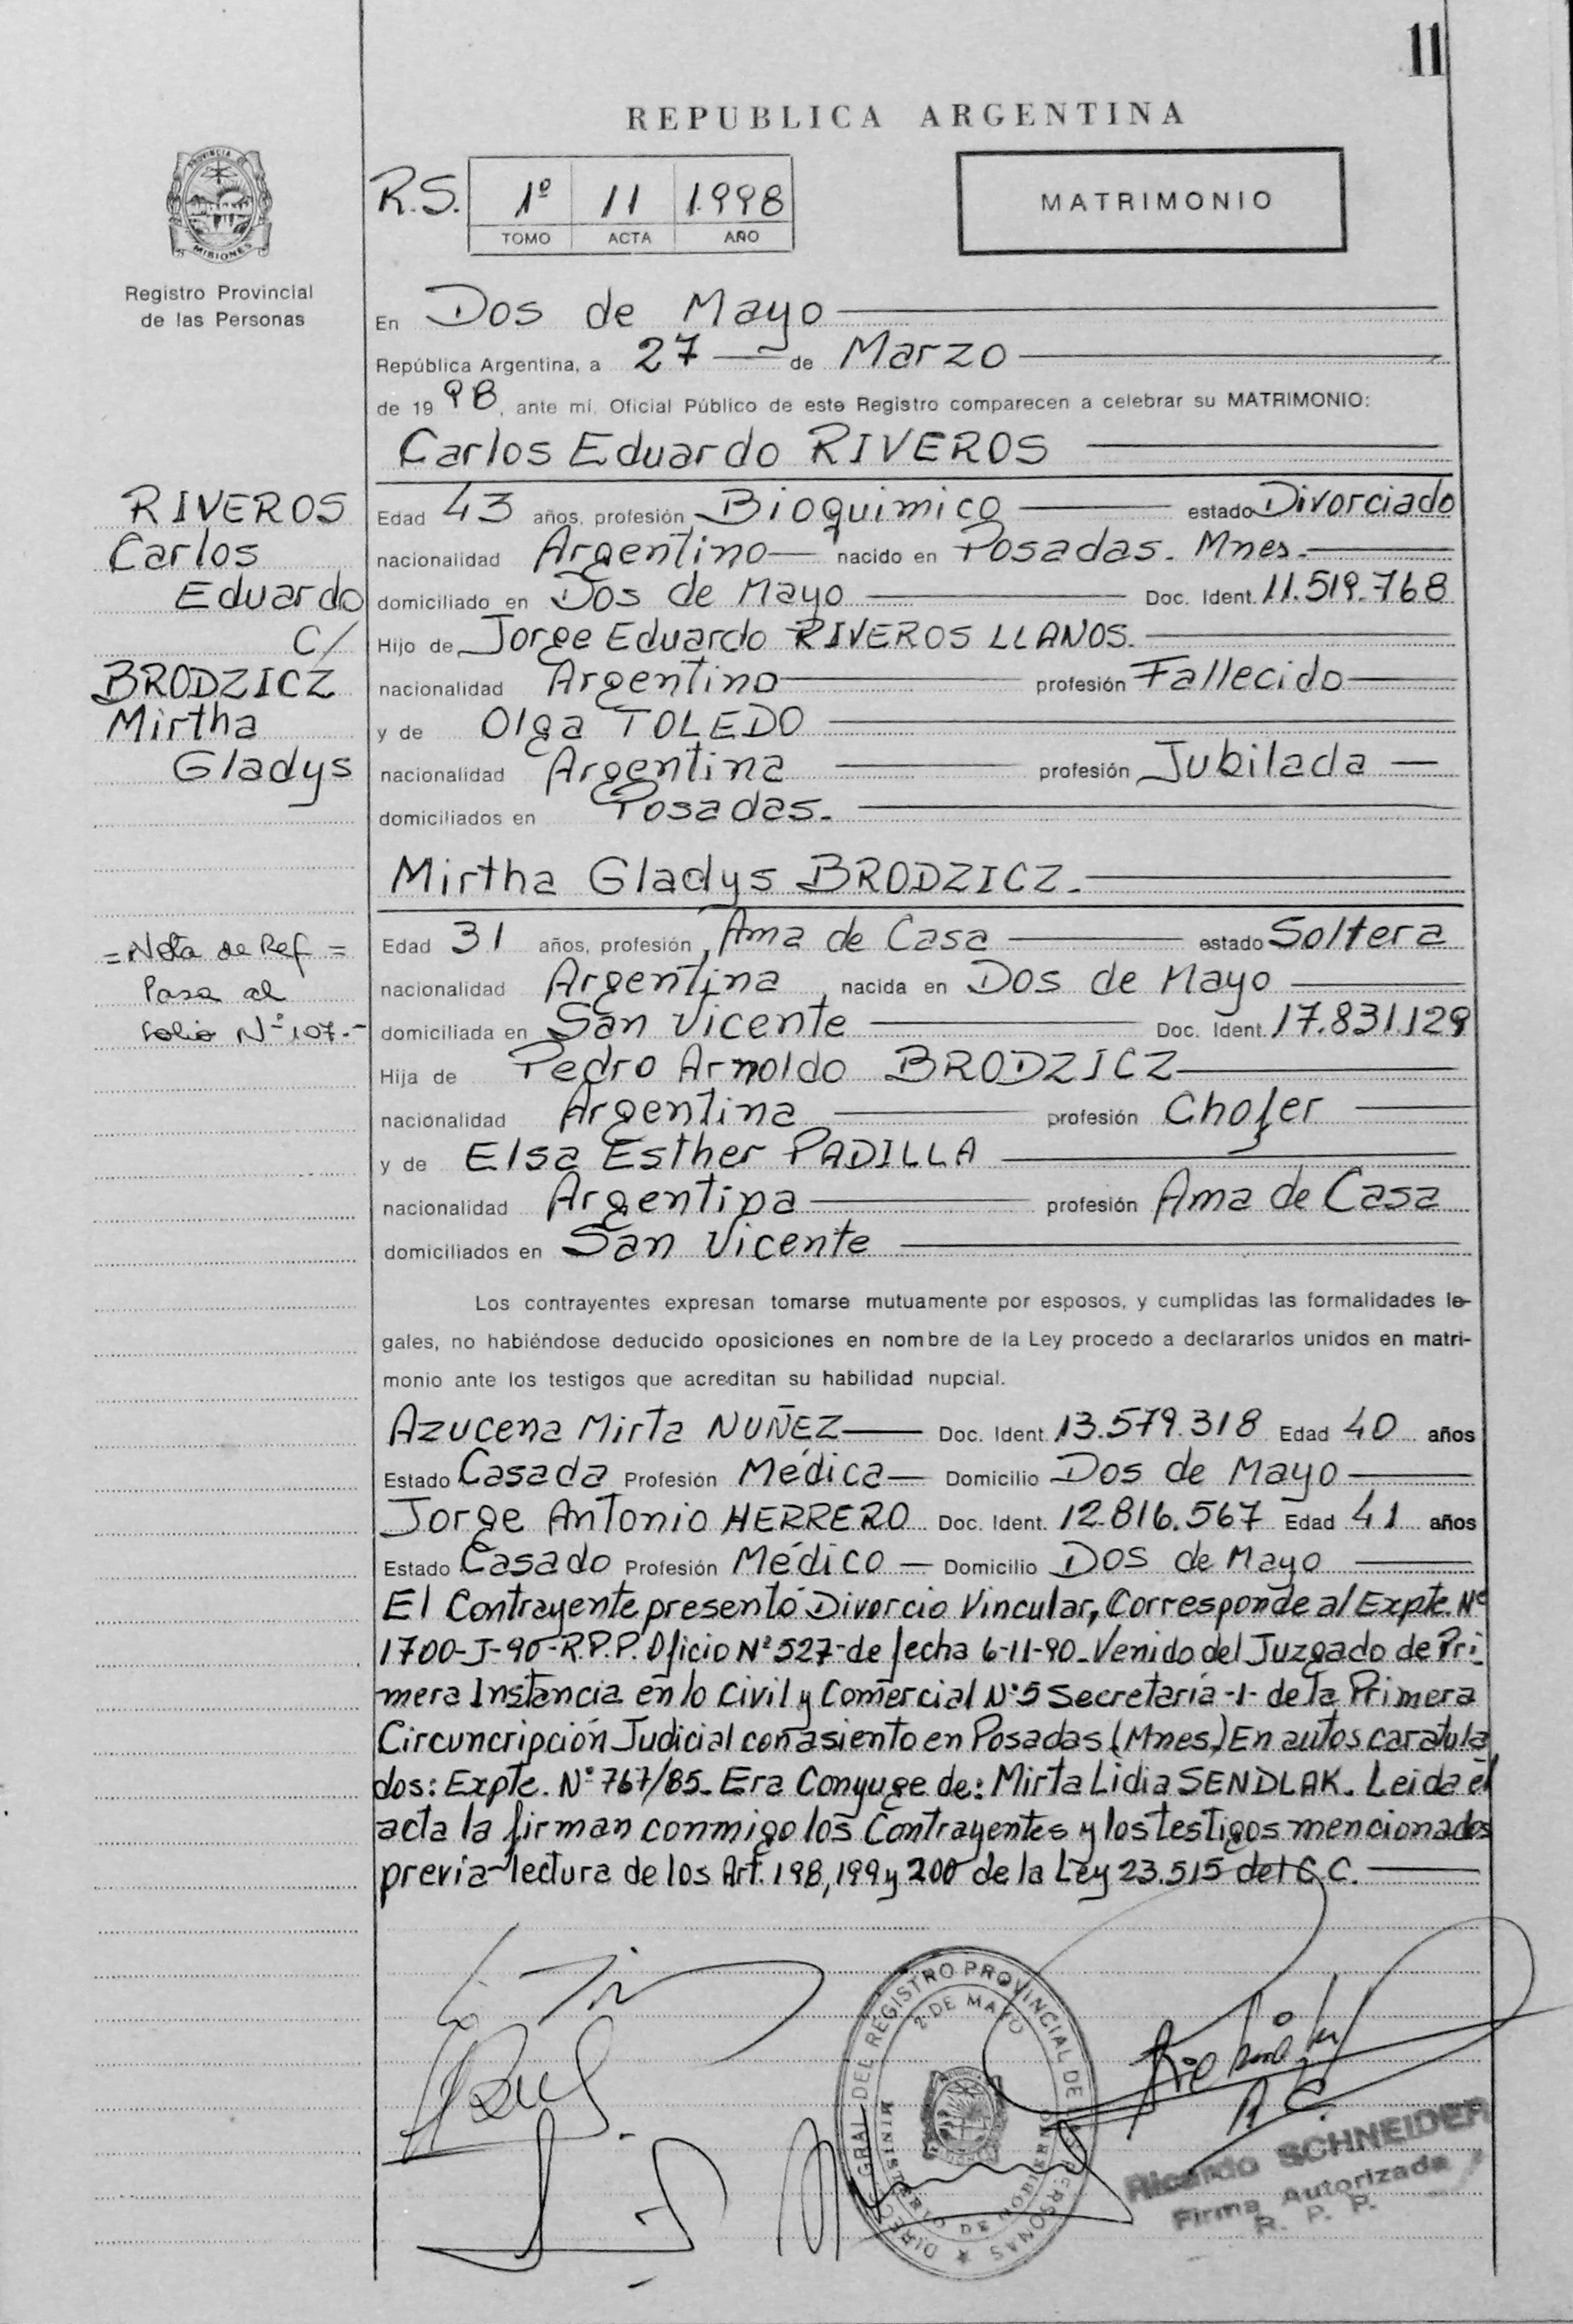 11
REPUBLICA ARGENTINA
PROVINCIA DE
MISIONES
Registro Provincial
de las Personas
R.S. 1º 11 1.998
TOMO ACTA AÑO
MATRIMONIO
En Dos de Mayo
República Argentina, a 27 de Marzo
de 19 98, ante mí, Oficial Público de este Registro comparecen a celebrar su MATRIMONIO:
Carlos Eduardo RIVEROS
RIVEROS
Carlos
Eduardo
C/
BRODZICZ
Mirtha
Gladys
Edad 43 años, profesión Bioquimico estado Divorciado
nacionalidad Argentino nacido en Posadas. Mnes.
domiciliado en Dos de Mayo Doc. Ident. 11.519.768
Hijo de Jorge Eduardo RIVEROS LLANOS.
nacionalidad Argentino profesión Fallecido
y de Olga TOLEDO
nacionalidad Argentina profesión Jubilada
domiciliados en Posadas.
Mirtha Gladys BRODZICZ.
= Nota de Ref =
Pasa al
folio Nº 107.-
Edad 31 años, profesión Ama de Casa estado Soltera
nacionalidad Argentina nacida en Dos de Mayo
domiciliada en San Vicente Doc. Ident. 17.831.129
Hija de Pedro Arnoldo BRODZICZ
nacionalidad Argentina profesión Chofer
y de Elsa Esther PADILLA
nacionalidad Argentina profesión Ama de Casa
domiciliados en San Vicente
Los contrayentes expresan tomarse mutuamente por esposos, y cumplidas las formalidades le-
gales, no habiéndose deducido oposiciones en nombre de la Ley procedo a declararlos unidos en matri-
monio ante los testigos que acreditan su habilidad nupcial.
Azucena Mirta NUÑEZ Doc. Ident. 13.579.318 Edad 40 años
Estado Casada Profesión Médica Domicilio Dos de Mayo
Jorge Antonio HERRERO Doc. Ident. 12.816.567 Edad 41 años
Estado Casado Profesión Médico Domicilio Dos de Mayo
El Contrayente presentó Divorcio Vincular, Corresponde al Expte. Nº
1700-J-90-R.P.P. Oficio Nº 527-de fecha 6-11-90. Venido del Juzgado de Pri-
mera Instancia en lo Civil y Comercial Nº 5 Secretaría -1- de la Primera
Circuncripción Judicial con asiento en Posadas (Mnes.) En autos caratula
dos: Expte. Nº 767/85. Era Conyuge de: Mirta Lidia SENDLAK. Leida el
acta la firman conmigo los Contrayentes y los testigos mencionados
previa lectura de los Art. 198, 199 y 200 de la Ley 23.515 del C.C.
DIREC. GRAL. DEL REGISTRO PROVINCIAL DE PERSONAS
2 DE MAYO
MINISTERIO DE GOBIERNO
Ricardo SCHNEIDER
Firma Autorizada
R. P. P.